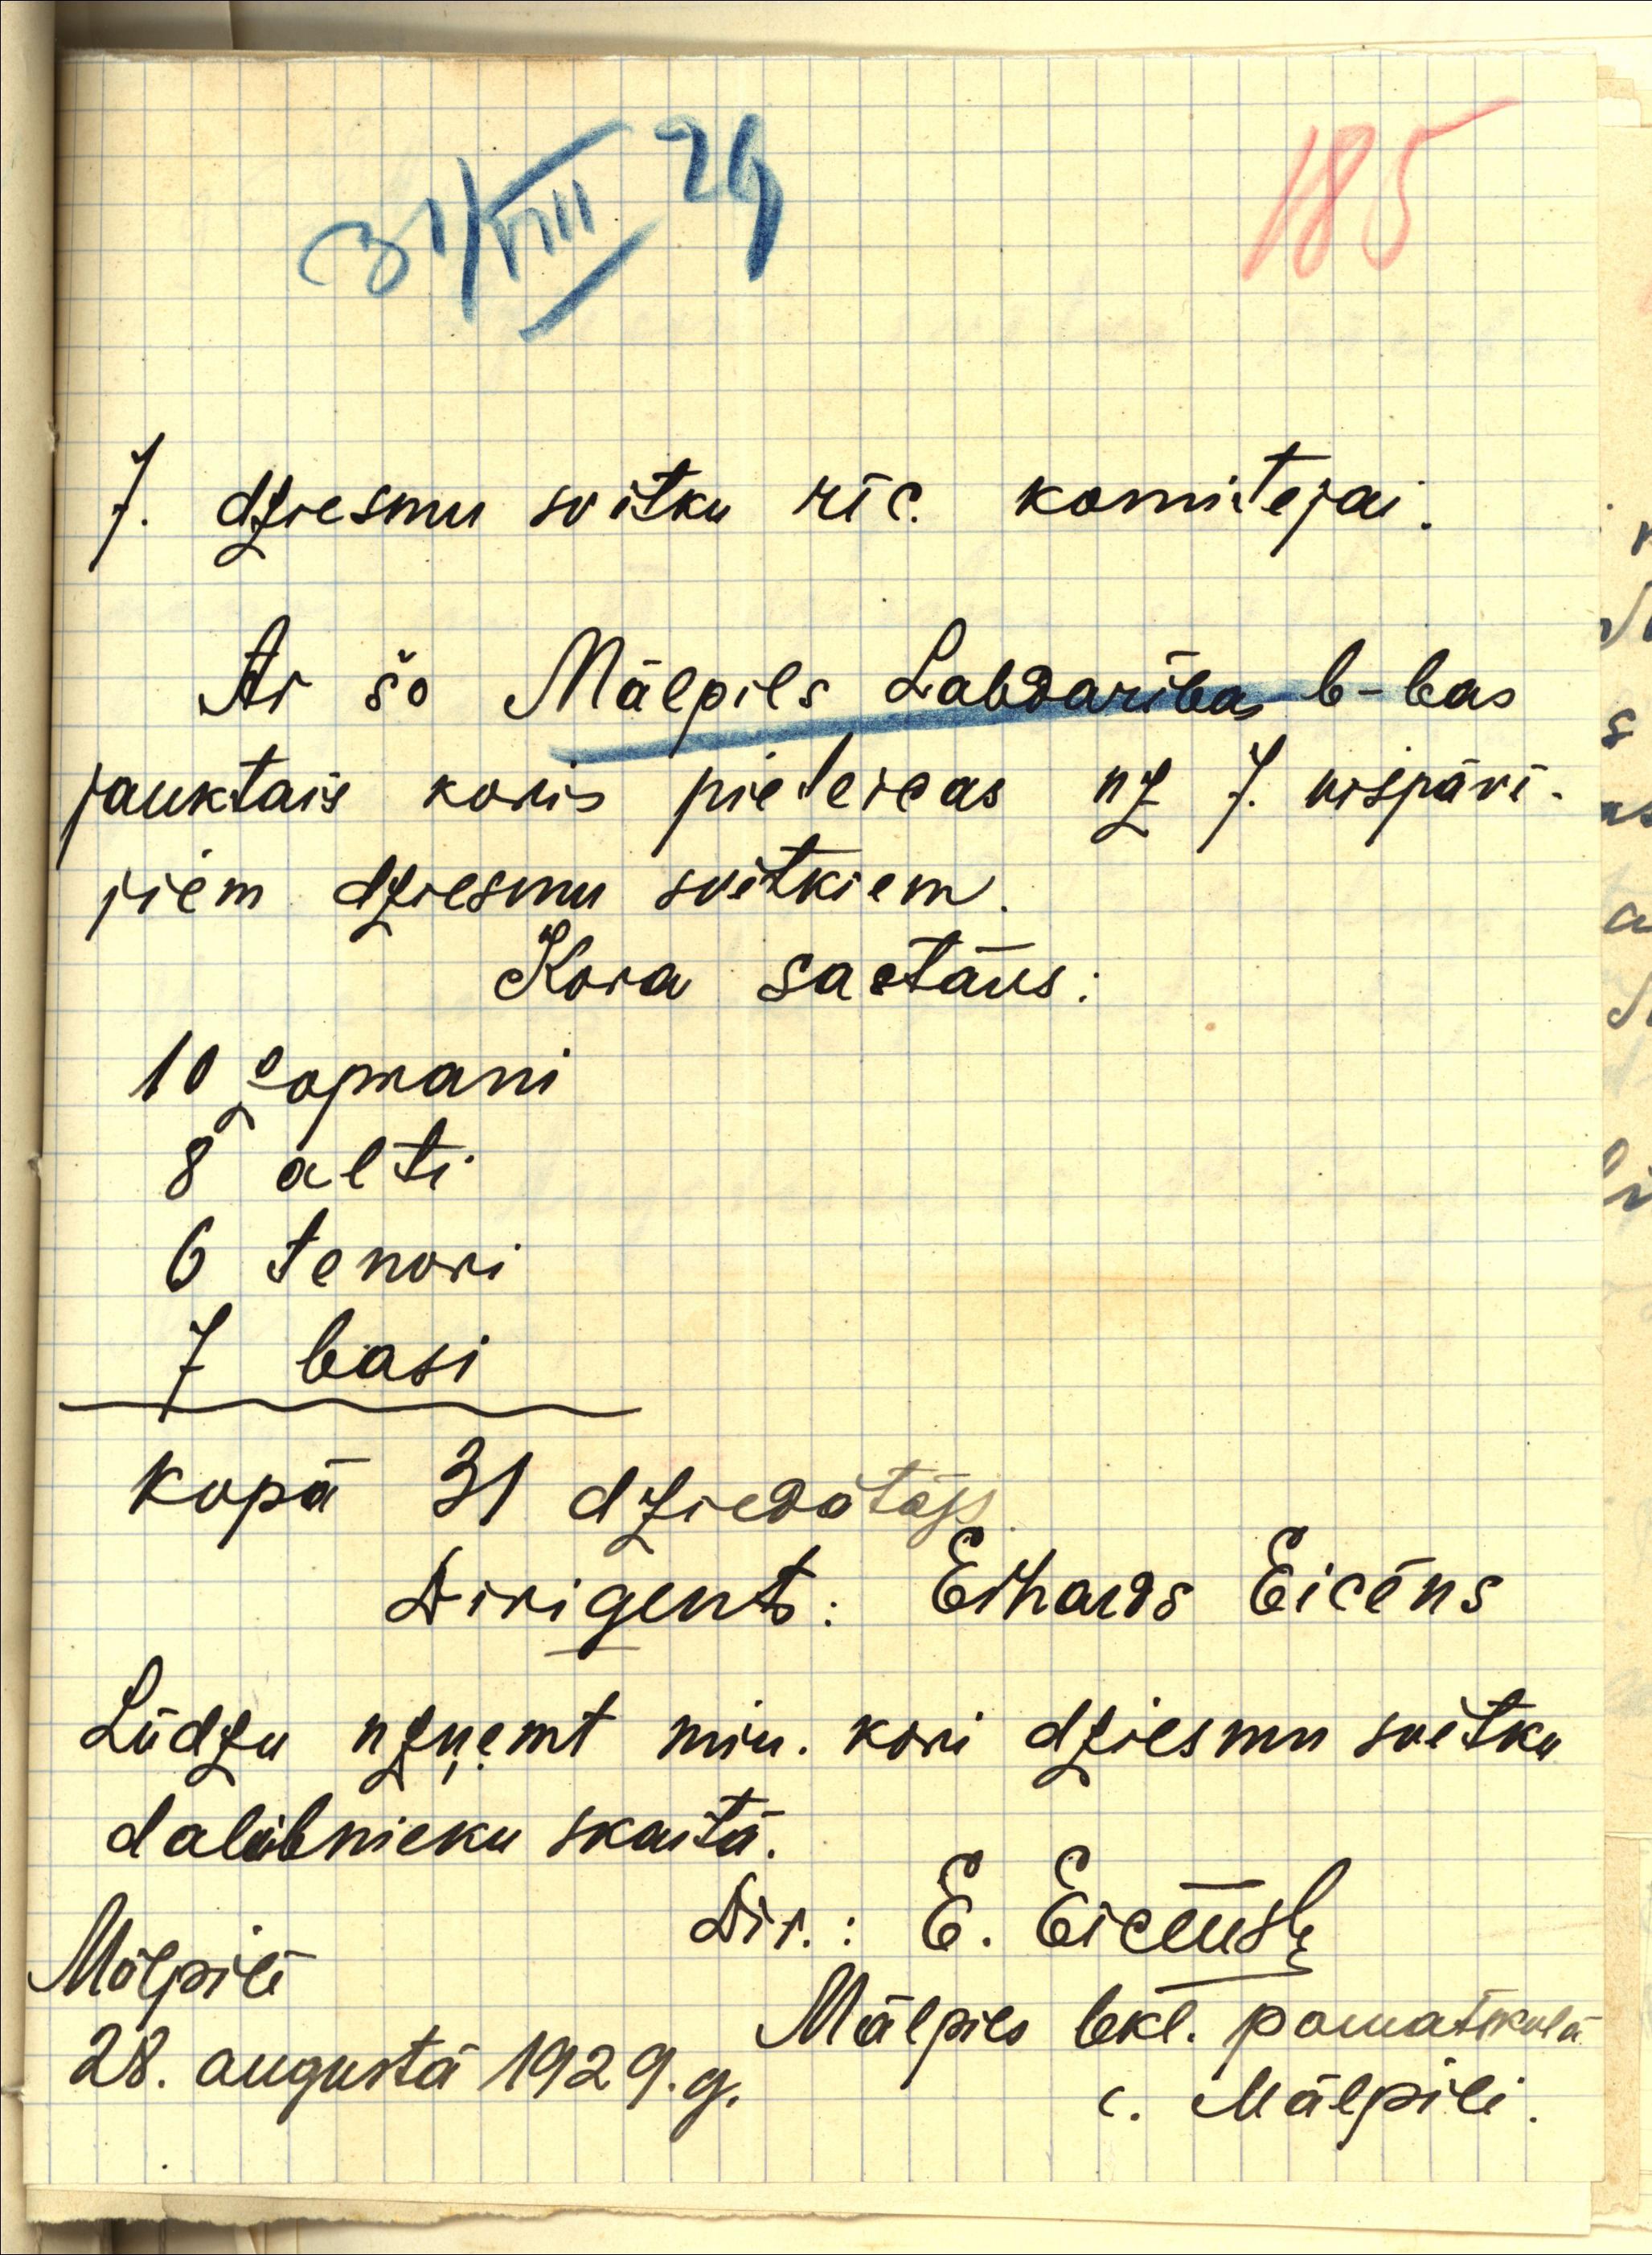 31/VIII 29
185
7. dziesmu svētku rīc. komitejai.
Ar šo Mālpils Labdarības b-bas
jauktais koris pieteicas uz 7. vispārē-
jiem dziesmu svētkiem.
Kora sastāvs:
10 soprani
8 alti
6 tenori
7 basi
kopā 31 dziedātājs
Dirigents: Eihards Eicēns
Lūdzu uzņemt min. kori dziesmu svētku
dalībnieku skaitā.
Dir.: E. Eicēns
Mālpilī
28. augustā 1929. g.
Mālpils bkl. pamatskolā
c. Mālpili.